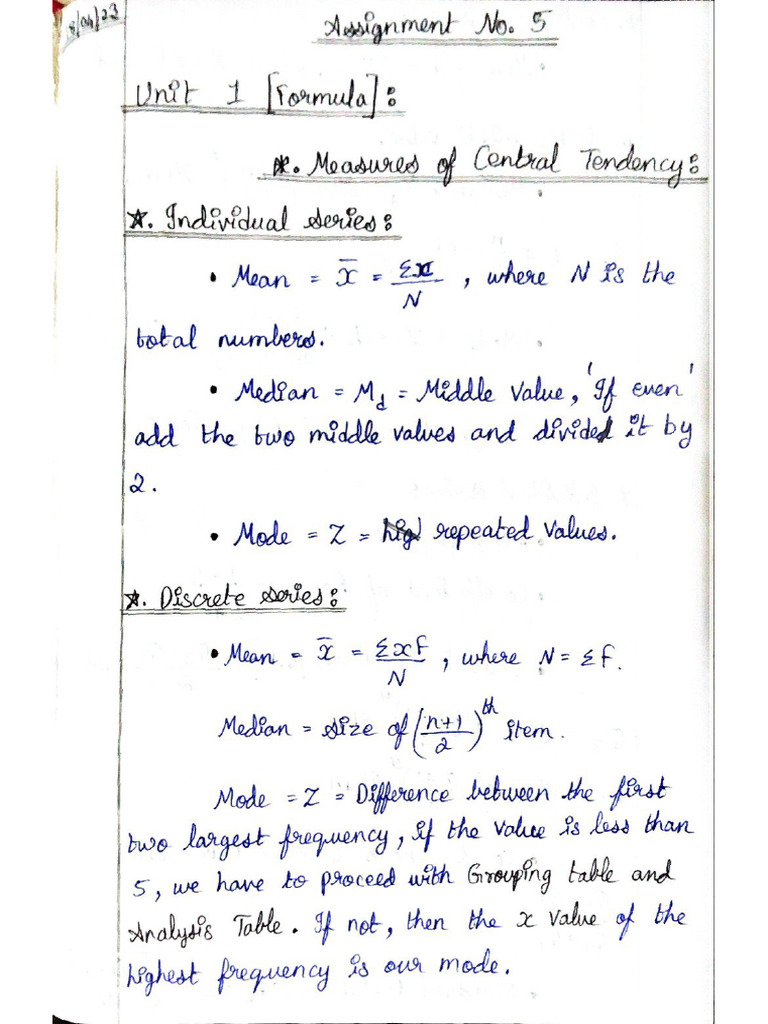 8/04/23
Assignment No. 5
Unit 1 [Formula]:
*. Measures of Central Tendency:
☆. Individual series:
• Mean = x̄ = Σx/N , where N is the
total numbers.
• Median = Md = Middle value, 'If even'
add the two middle values and divided it by
2.
• Mode = Z = repeated values.
☆. Discrete series:
• Mean = x̄ = Σxf/N , where N = Σf.
Median = size of (n+1/2)th item.
Mode = Z = Difference between the first
two largest frequency, if the value is less than
5, we have to proceed with Grouping table and
Analysis Table. If not, then the x value of the
highest frequency is our mode.